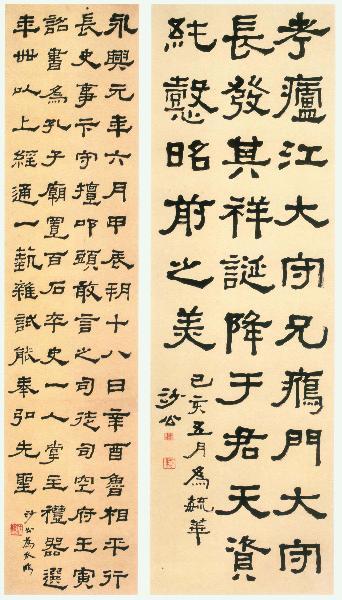 考廬江大守兄鴈門大守
長發其祥誕降于君天資
純懿昭前之美
己亥五月為毓華
沙公
永興元年六月甲辰朔十八日辛酉魯相平行
長史事卞守擅叩頭敢言之司徒司空府壬寅
詔書為孔子廟置百石卒史一人掌主禮器選
年卌以上經通一藝雜試能奉弘先聖
沙公為